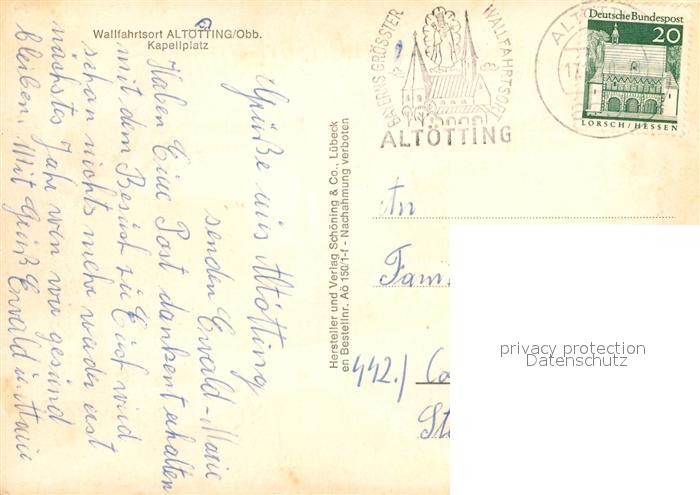 Wallfahrtsort ALTÖTTING/Obb.
Kapellplatz
Grüße aus Altötting
senden Ewald - Marie
Haben Eure Post dankent erhalten
mit dem Besuch zu Euch wird
schon nichts mehr wieder erst
nächstes Jahr wen wir gesund
bleiben. Mit Gruß Ewald u. Marie
Hersteller und Verlag Schöning & Co., Lübeck
en Bestellnr. Aö 150/1-f - Nachahmung verboten
BAYERNS GRÖSSTER WALLFAHRTSORT
ALTÖTTING
ALTÖ
Deutsche Bundespost
20
LORSCH/HESSEN
An
Fam
442./
privacy protection
Datenschutz